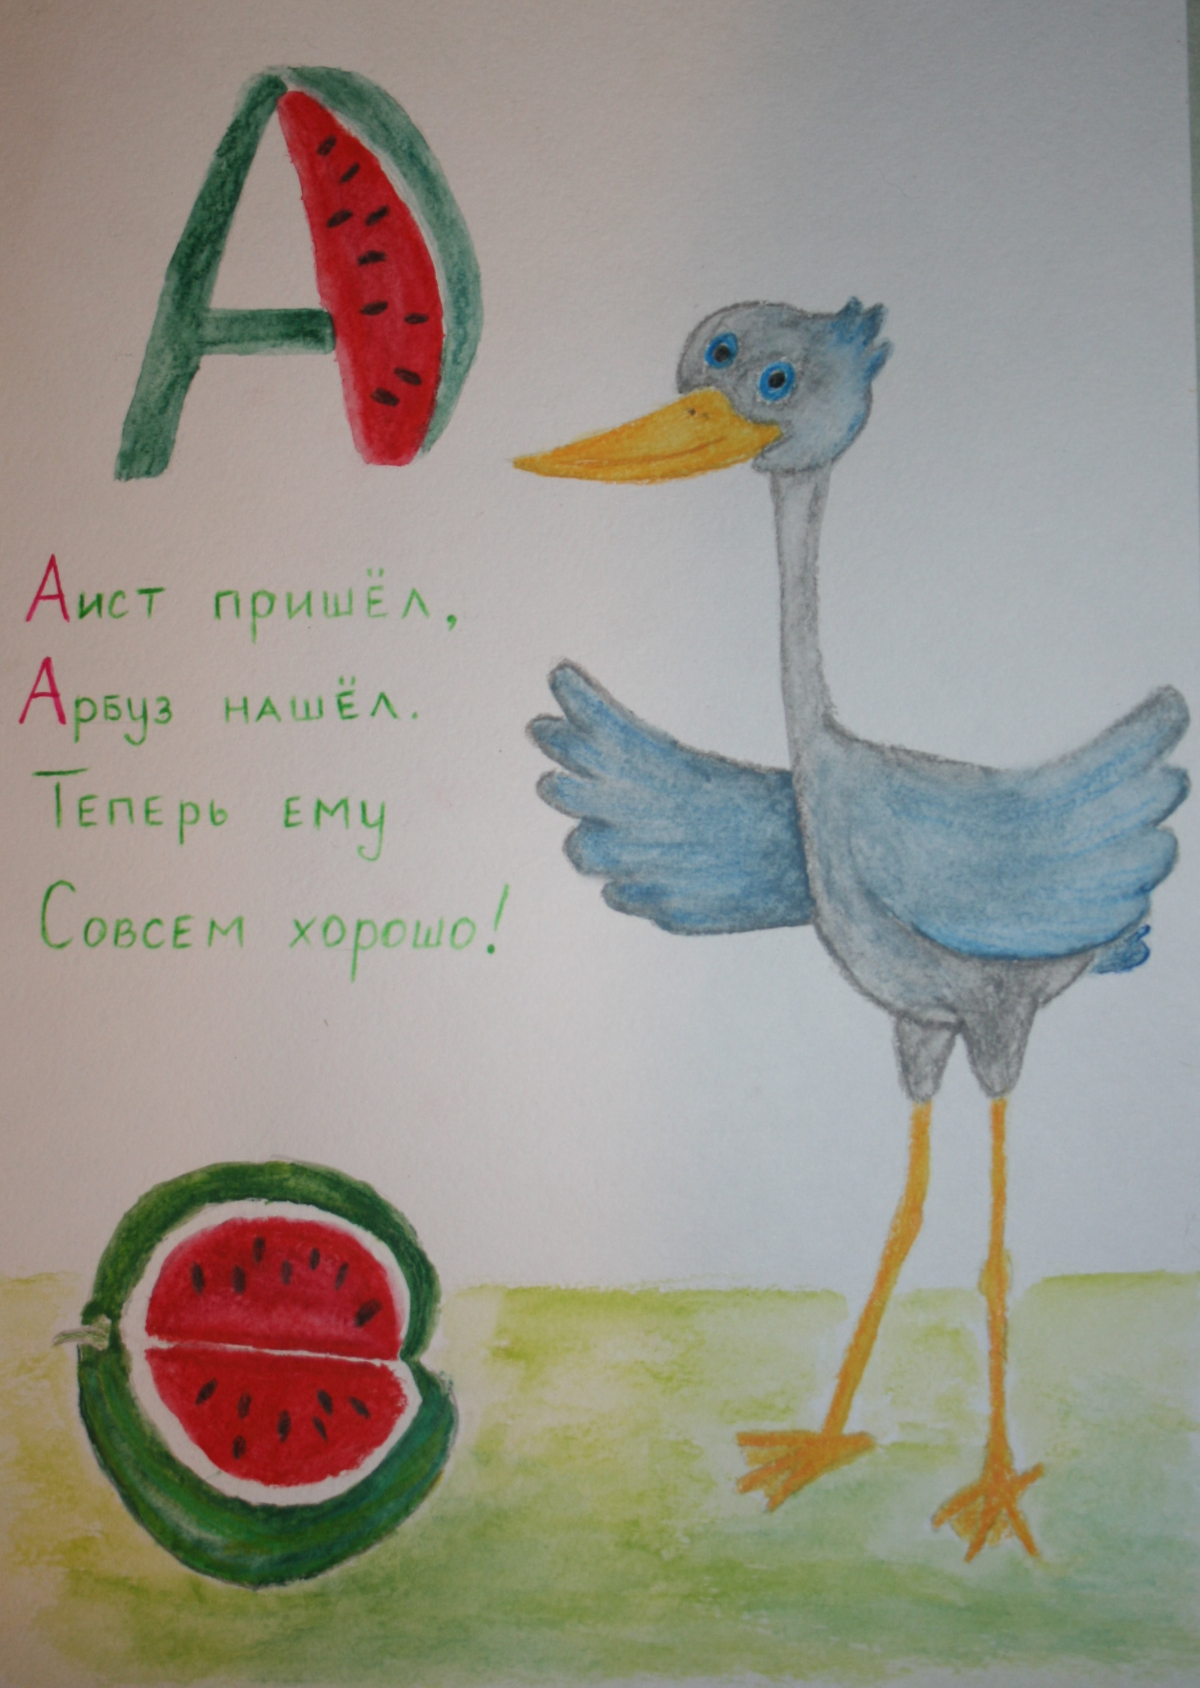 А
Аист пришёл,
Арбуз нашёл.
Теперь ему
Совсем хорошо!